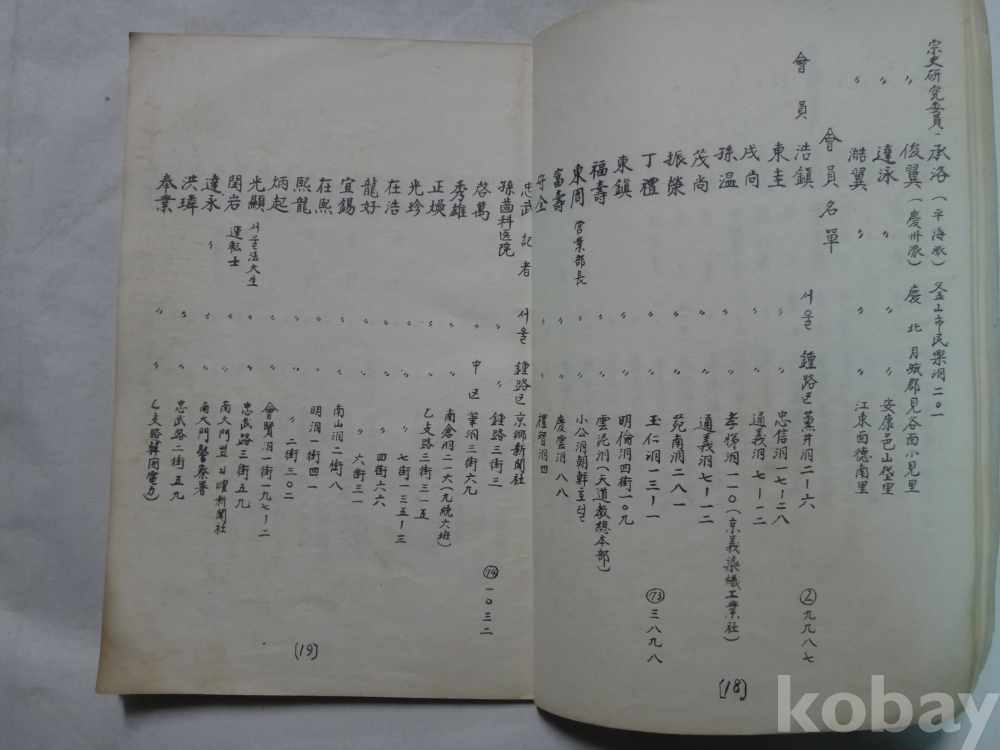 宗史研究委員 承洛 (平海派) 又釜山市民樂洞二〇一
〃 俊翼 (慶州派) 慶北月城郡見谷面小見里
〃 達泳 〃 〃 安康邑山垈里
〃 澔翼 〃 〃 江東面德南里
會員名單
會員 浩鎭 서울 鍾路区 薰井洞二ー六 ②九九八七
東圭 〃 〃 忠信洞一七ー二八
戌尚 〃 〃 通義洞七ー一二
孫温 〃 〃 孝悌洞一一〇(京義染織工業社)
茂尚 〃 〃 通義洞七ー一二
振榮 〃 〃 苑南洞二八一
丁禮 〃 〃 玉仁洞一三ー一 (73)三八九八
東鎭 〃 〃 明倫洞四街一〇九
福壽 〃 〃 雲泥洞(天道教總本部)
東周 営業部長 〃 〃 小公洞朝鮮호텔
富壽 〃 〃 慶雲洞八八
守全 〃 〃 禮智洞四
[18]
忠武 記者 서울 鍾路区 京鄕新聞社
孫齒科医院 〃 〃 鍾路三街三 (74)一〇三二
啓萬 〃 中区 筆洞三街六九
秀雄 〃 〃 南倉洞二一六(九統六班)
正煥 〃 〃 乙支路三街三一五
光珍 〃 〃 〃 七街一三五ー三
在浩 〃 〃 〃 四街六六
龍好 〃 〃 〃 六街三一
宜錫 〃 〃 南山洞二街八
在熙 〃 〃 明洞一街四一
熙龍 〃 〃 〃 二街三〇二
炳起 〃 〃 會賢洞一街一九七ー二
光顯 서울法大生 〃 〃 忠武路三街五九
閏岩 運転士 〃 〃 南大門 日曜新聞社
達永 〃 〃 〃 南大門警察署
洪瑋 〃 〃 忠武路二街五九
奉業 〃 〃 乙支路韓国電力)
[19]
kobay